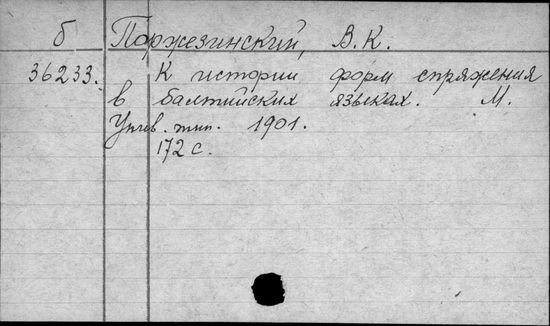 б Поржезинский, В.К.
36233. К истории форм спряжения
в балтийских языках. М.
Унив. тип. 1901.
172 с.